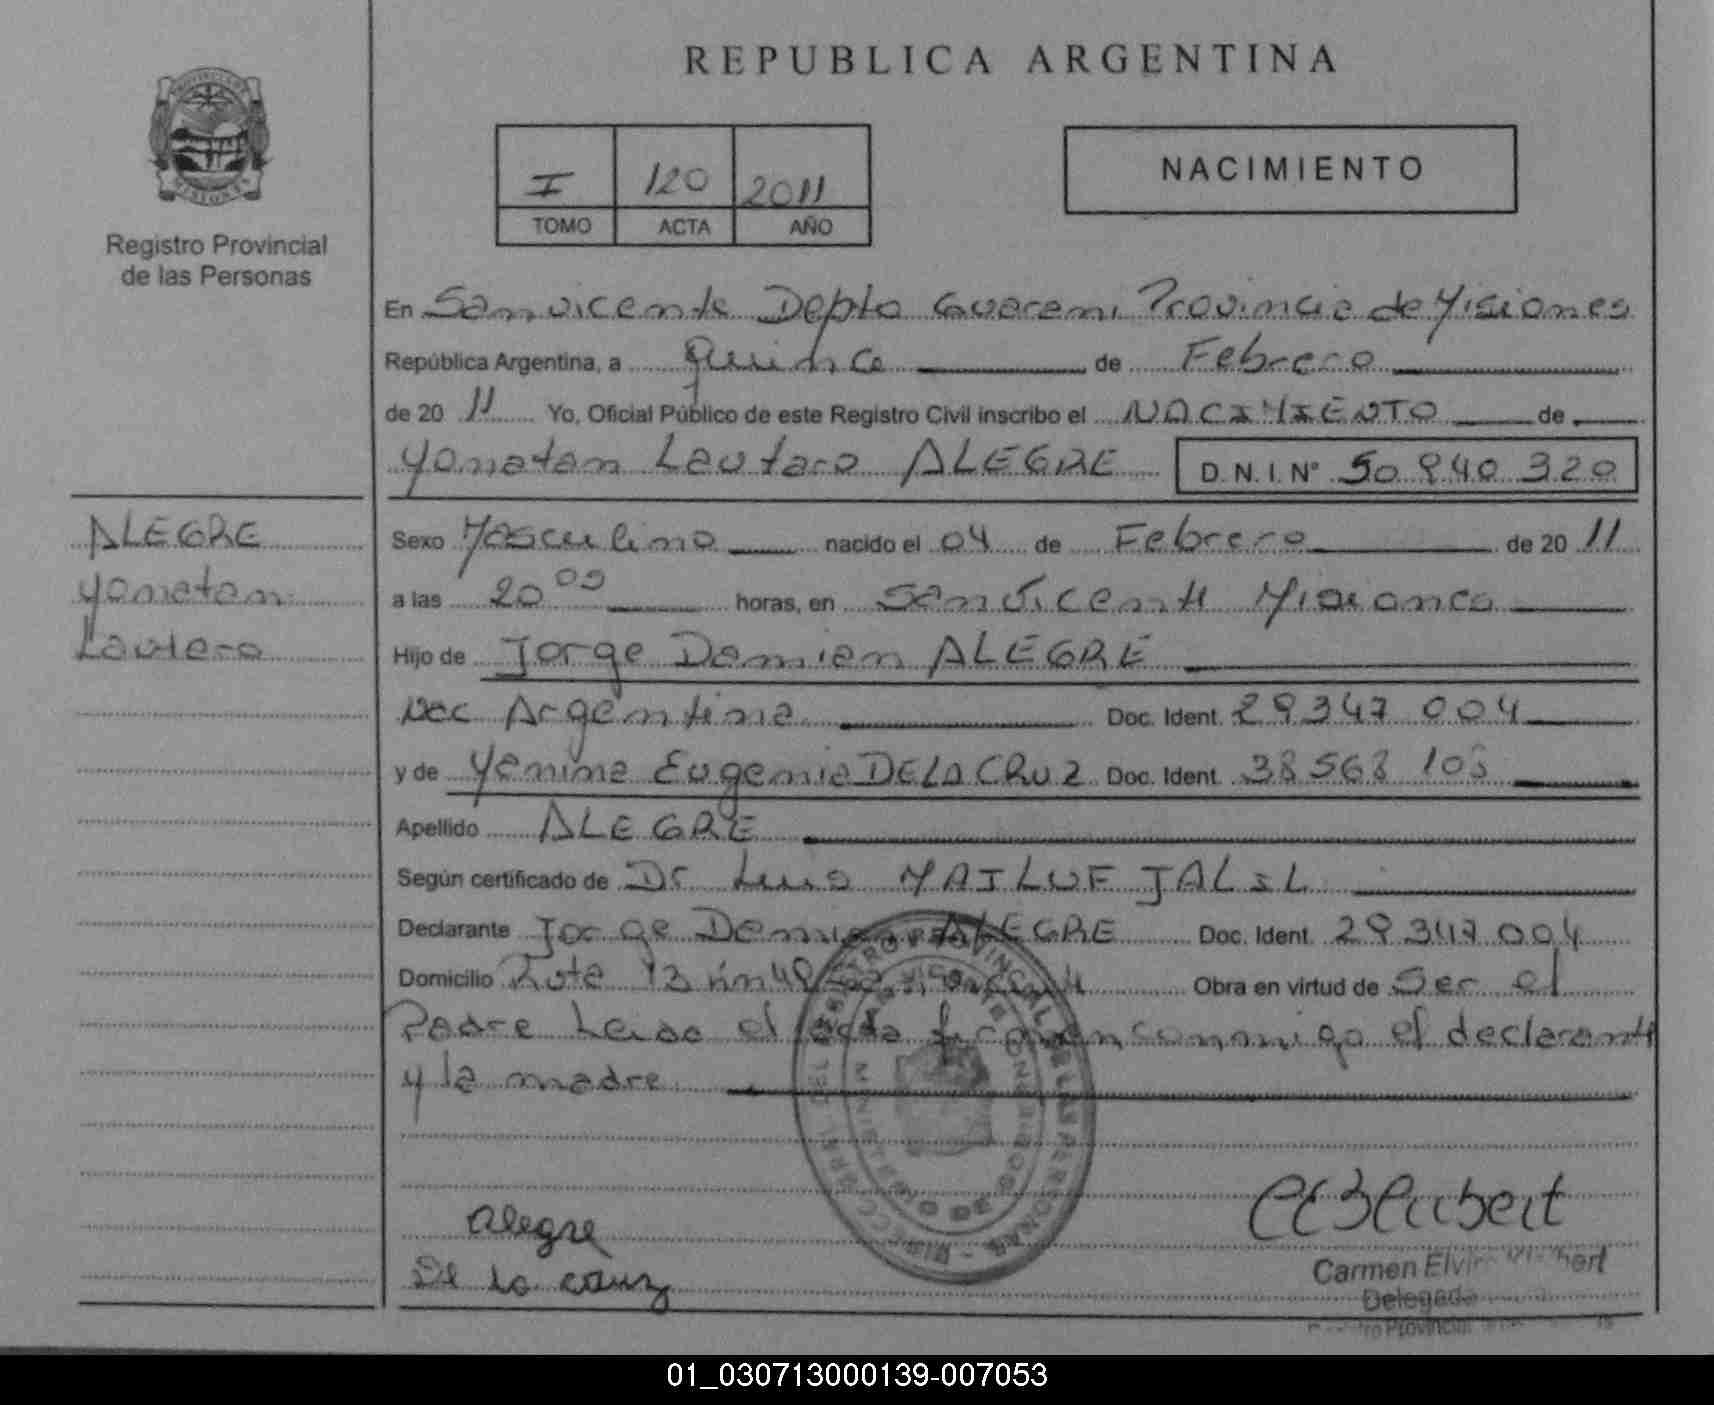 REPUBLICA ARGENTINA
I 120 2011
TOMO ACTA AÑO
NACIMIENTO
Registro Provincial
de las Personas
En San Vicente Depto Guarani Provincia de Misiones
República Argentina, a Quince de Febrero
de 20 11 Yo, Oficial Público de este Registro Civil inscribo el NACIMIENTO de
Yonatan Lautaro ALEGRE D.N.I.Nº 50.940.320
ALEGRE
Yonatan
Lautaro
Sexo Masculino nacido el 04 de Febrero de 20 11
a las 20 00 horas, en San Vicente Misiones
Hijo de Jorge Damian ALEGRE
Nac Argentina Doc. Ident. 29347 004
y de Yanina Eugenia DE LA CRUZ Doc. Ident. 38568 108
Apellido ALEGRE
Según certificado de Dr Luis MAILUF JALIL
Declarante Jorge Damian ALEGRE Doc. Ident. 29347 004
Domicilio Ruta 13 km 48 San Vicente Obra en virtud de Ser el
Padre Leida el acta firman conmigo el declarante
y la madre
alegre
De la cruz
Carmen
Delegada
Provincial
01_030713000139-007053